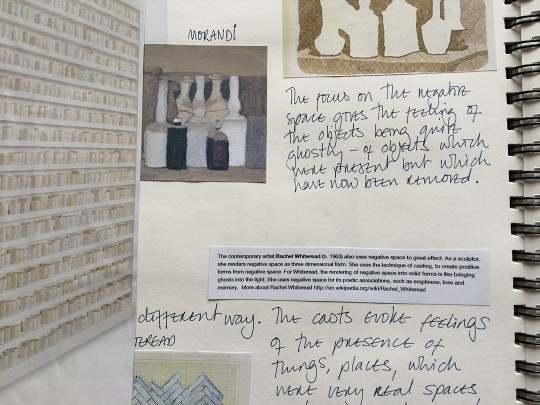 MORANDI
THE FOCUS ON THE NEGATIVE
SPACE GIVES THE FEELING OF
THE OBJECTS BEING QUITE
GHOSTLY – OF OBJECTS WHICH
WERE PRESENT BUT WHICH
HAVE NOW BEEN REMOVED.
The contemporary artist Rachel Whiteread (b. 1963) also uses negative space to great effect. As a sculptor,
she renders negative space as three dimensional form. She uses the technique of casting, to create positive
forms from negative space. For Whiteread, the rendering of negative space into solid forms is like bringing
ghosts into the light. She uses negative space for its poetic associations, such as emptiness, loss and
memory. More about Rachel Whiteread http://en.wikipedia.org/wiki/Rachel_Whiteread
DIFFERENT WAY. THE CASTS EVOKE FEELINGS
OF THE PRESENCE OF
THINGS, PLACES, WHICH
WERE VERY REAL SPACES,
TEREAD